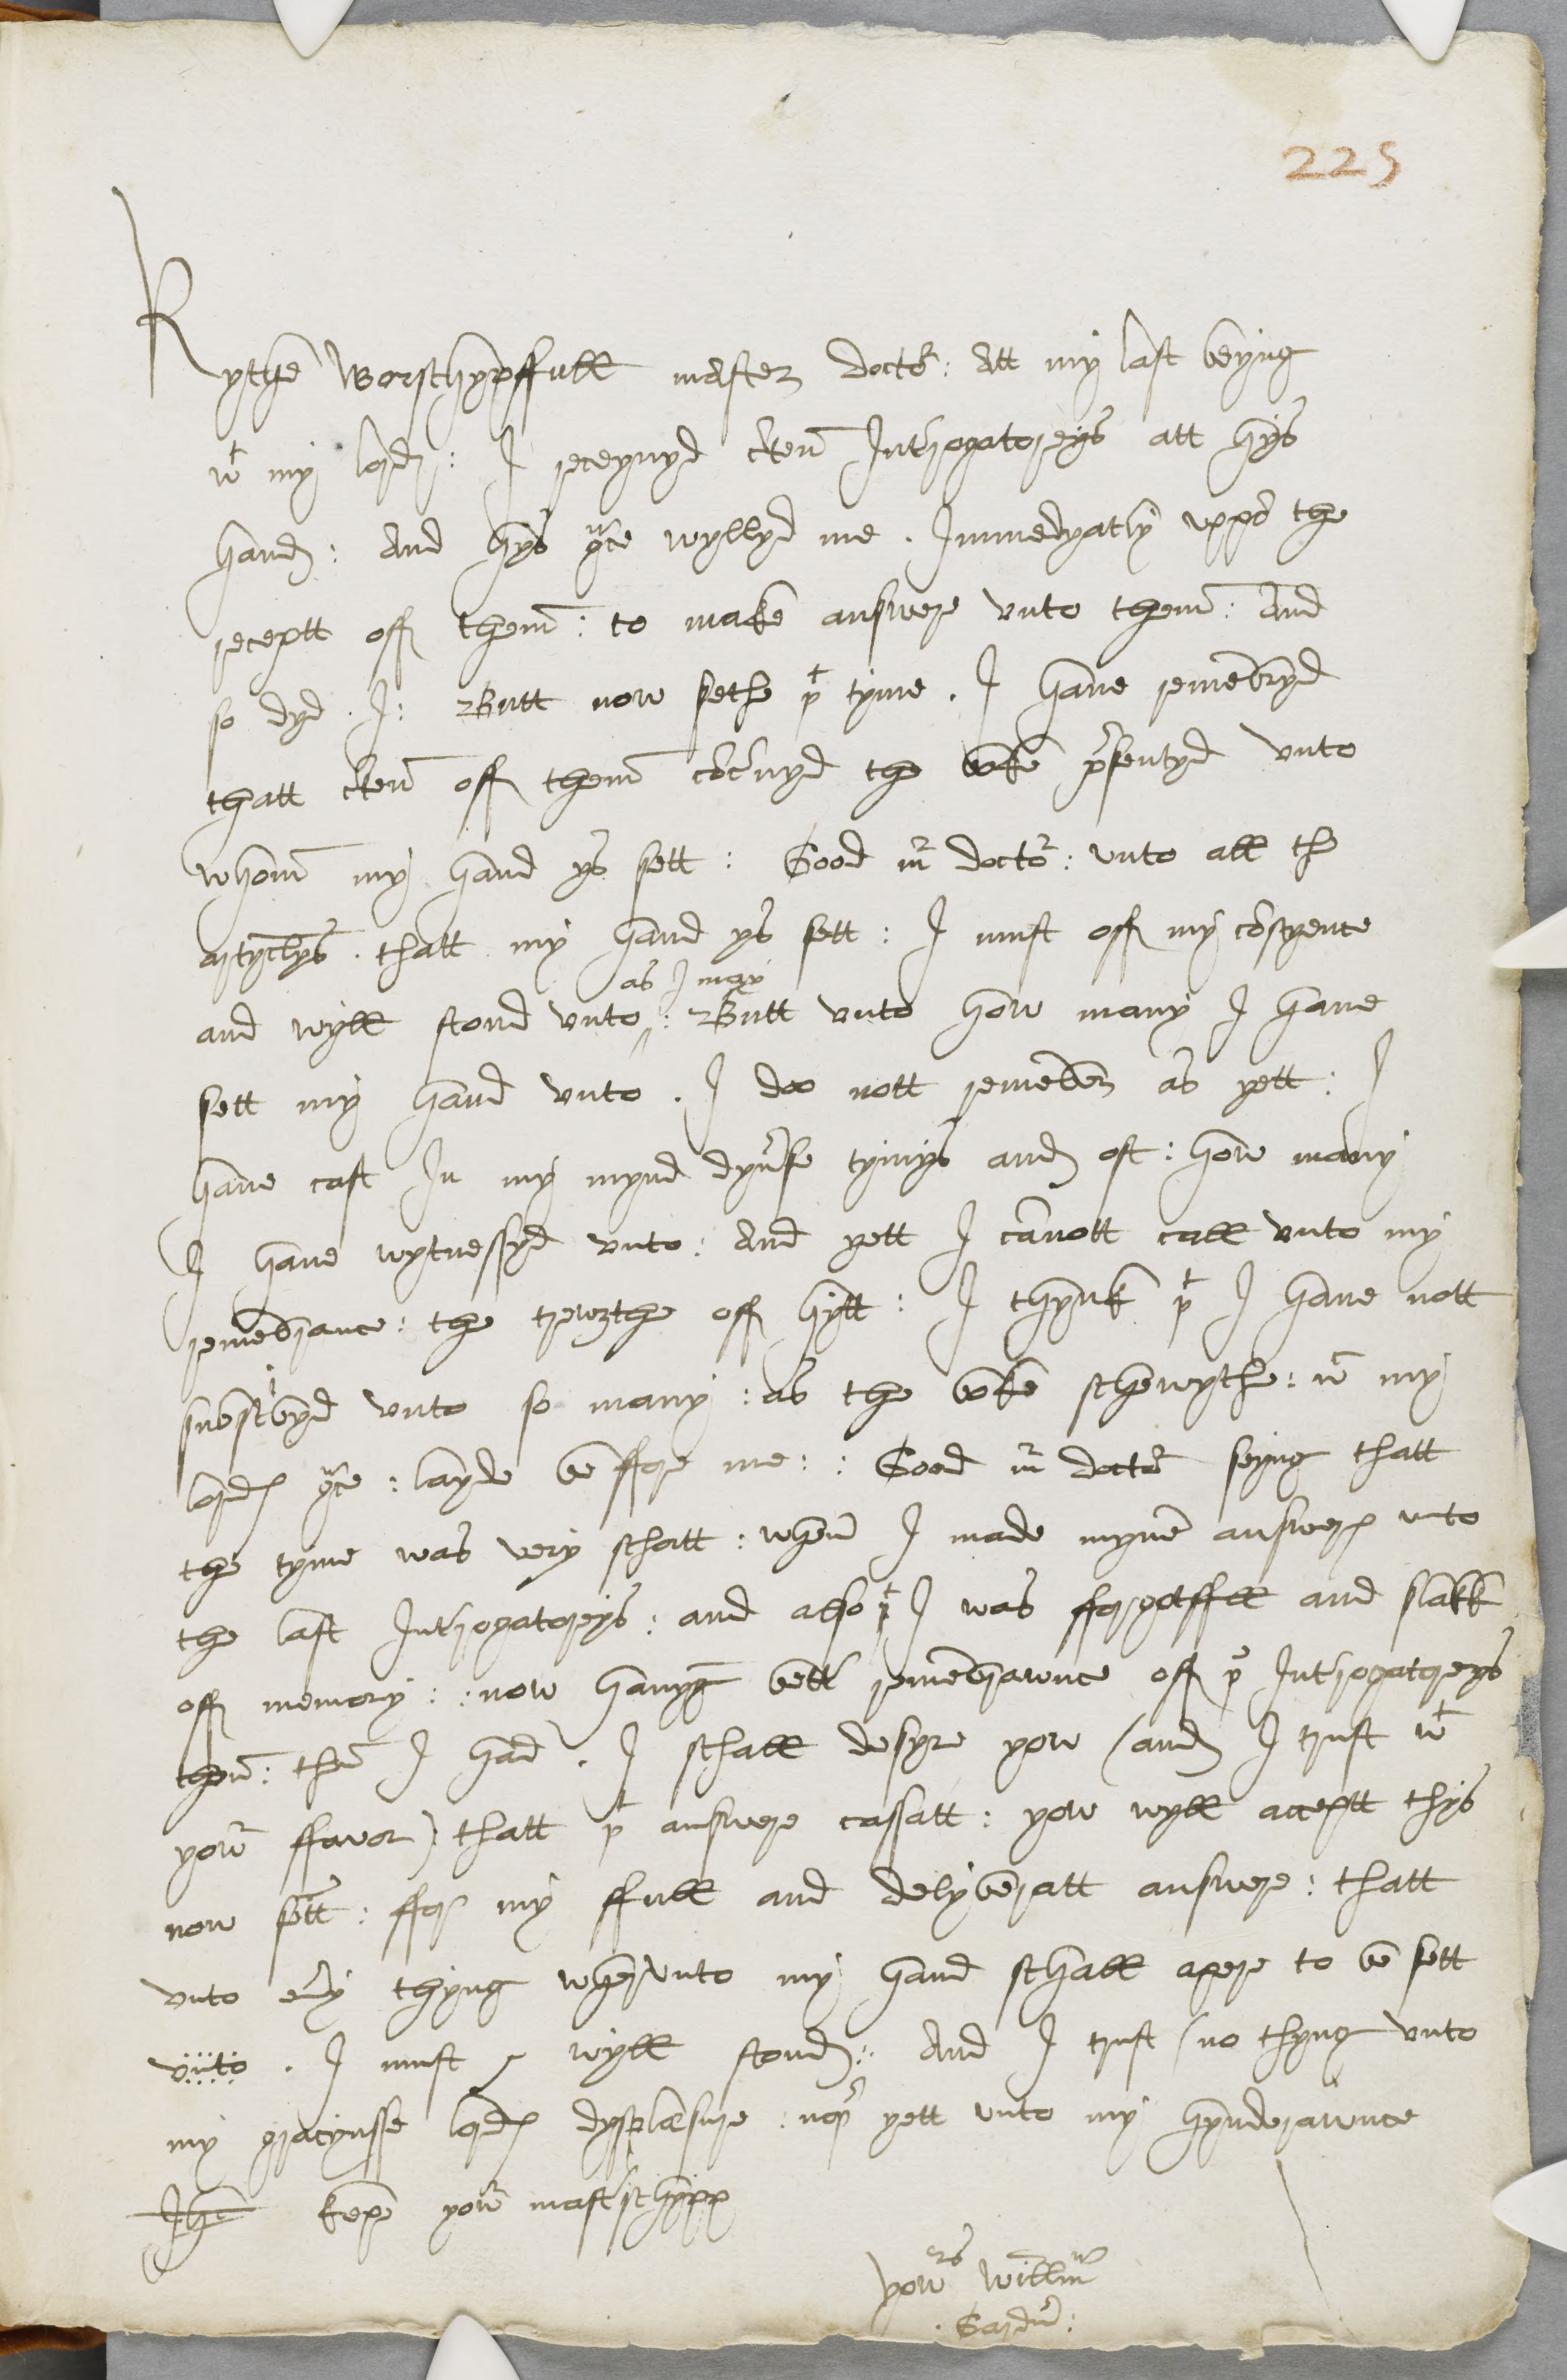 225
Rythe worschypffull master doctor : Att my last beyng
wt my lord : I receyvyd cten Int'rogatoreys att hys
hand : And hys grce wyllyd me . Immedyatly uppo the
receptt off them : to make answere vnto them : And
so dyd . I : Butt now sethe yt tyme . I have remebryd
thatt cten off them cocernyd the boke presentyd vnto
whom my hand ys sett : Good mr doctor : vnto all the
artyclys . thatt my hand ys sett : I must off my coscyence
as I may
and wyll stond vnto : Butt vnto how many I have
sett my hand vnto . I doo nott remeber as yett : I
have cast In my mynd dyverse tymys and oft : how many
I have wytnessyd vnto : And yett I canott call vnto my
remebrance : the trewthe off hytt : I thynk yt I have nott
subscribyd vnto so many : as the boke schewythe : wt my
lord grce : layde be ffore me : : Good mr doctor seyng thatt
the tyme was very schortt : when I made myne answer vnto
the last Int'rogatoreys : and also yt I was fforgetffull and slakk
off memory : : now havyg bett' remebrawnce off ye Int'rogatoreys
then : then I had . I schall desyre yow (and I trust wt
yowr ffavor) thatt yt answere cassatt : yow wyll acceptt thys
now sett : ffor my ffull and delyberatt answere : thatt
vnto e'ry thyng wherevnto my hand schall apere to be sett
vnto . I must & wyll stond : : And I trust (no thyng vnto
my gracyusse lord dysplesure : nor yett vnto my hynderawnce
Jhe kepe yowr mast'schypp
yowrs Willm
. Gardner :